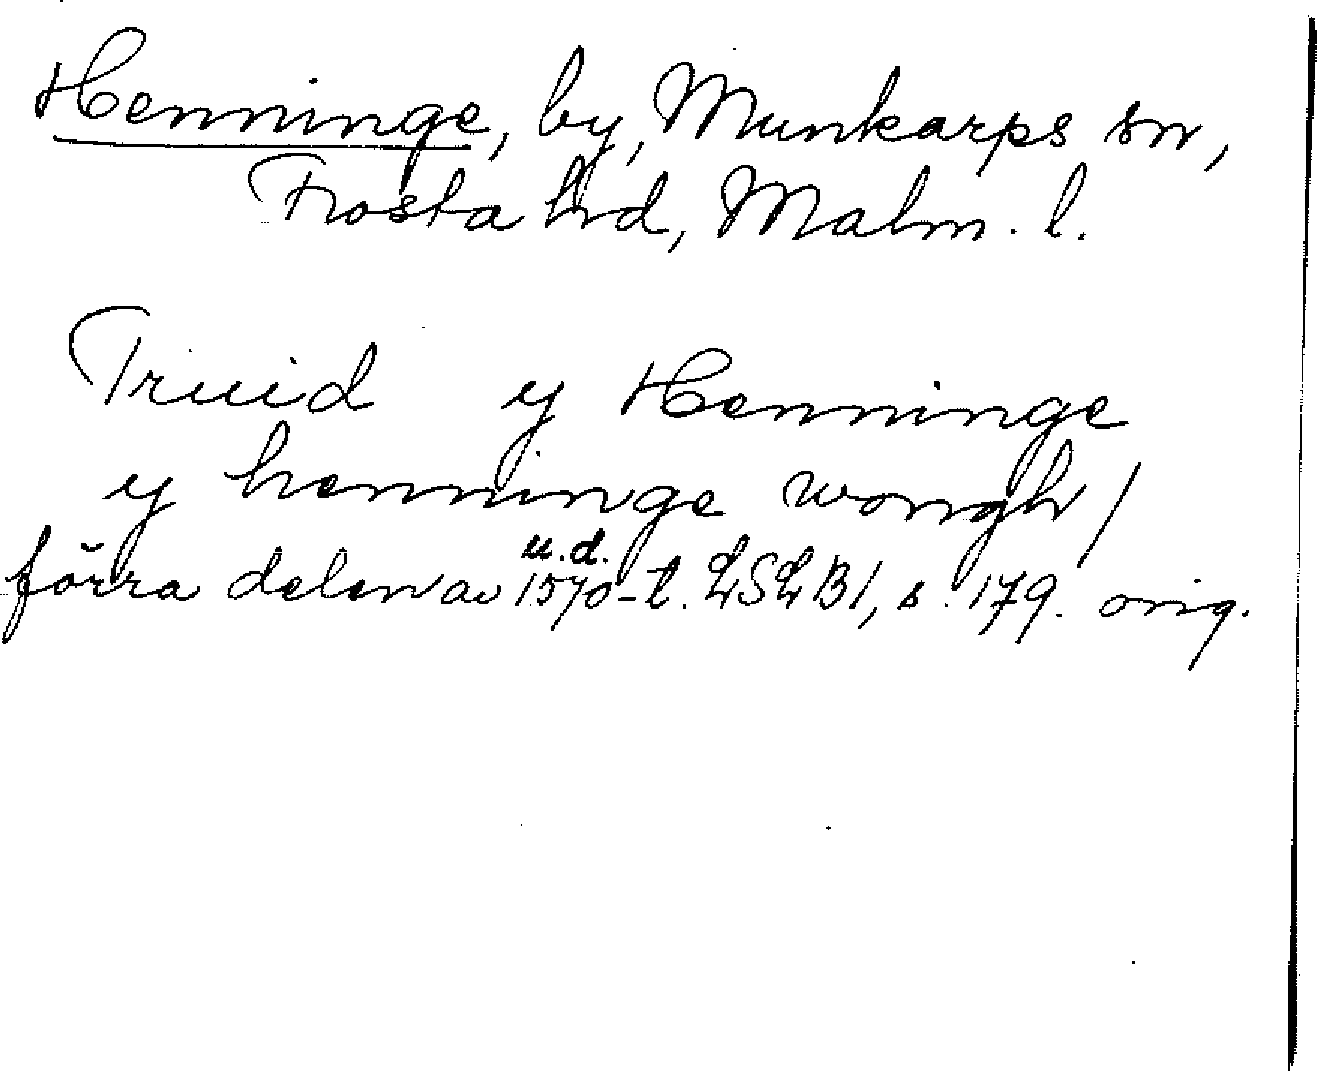 Henninge, by, Munkarps sn,
Frosta hd, Malm. l.
Truid y Henninge
y henninge wongh/
u.d.
förra delen av 1570-t. LSLB1, s. 179. orig.